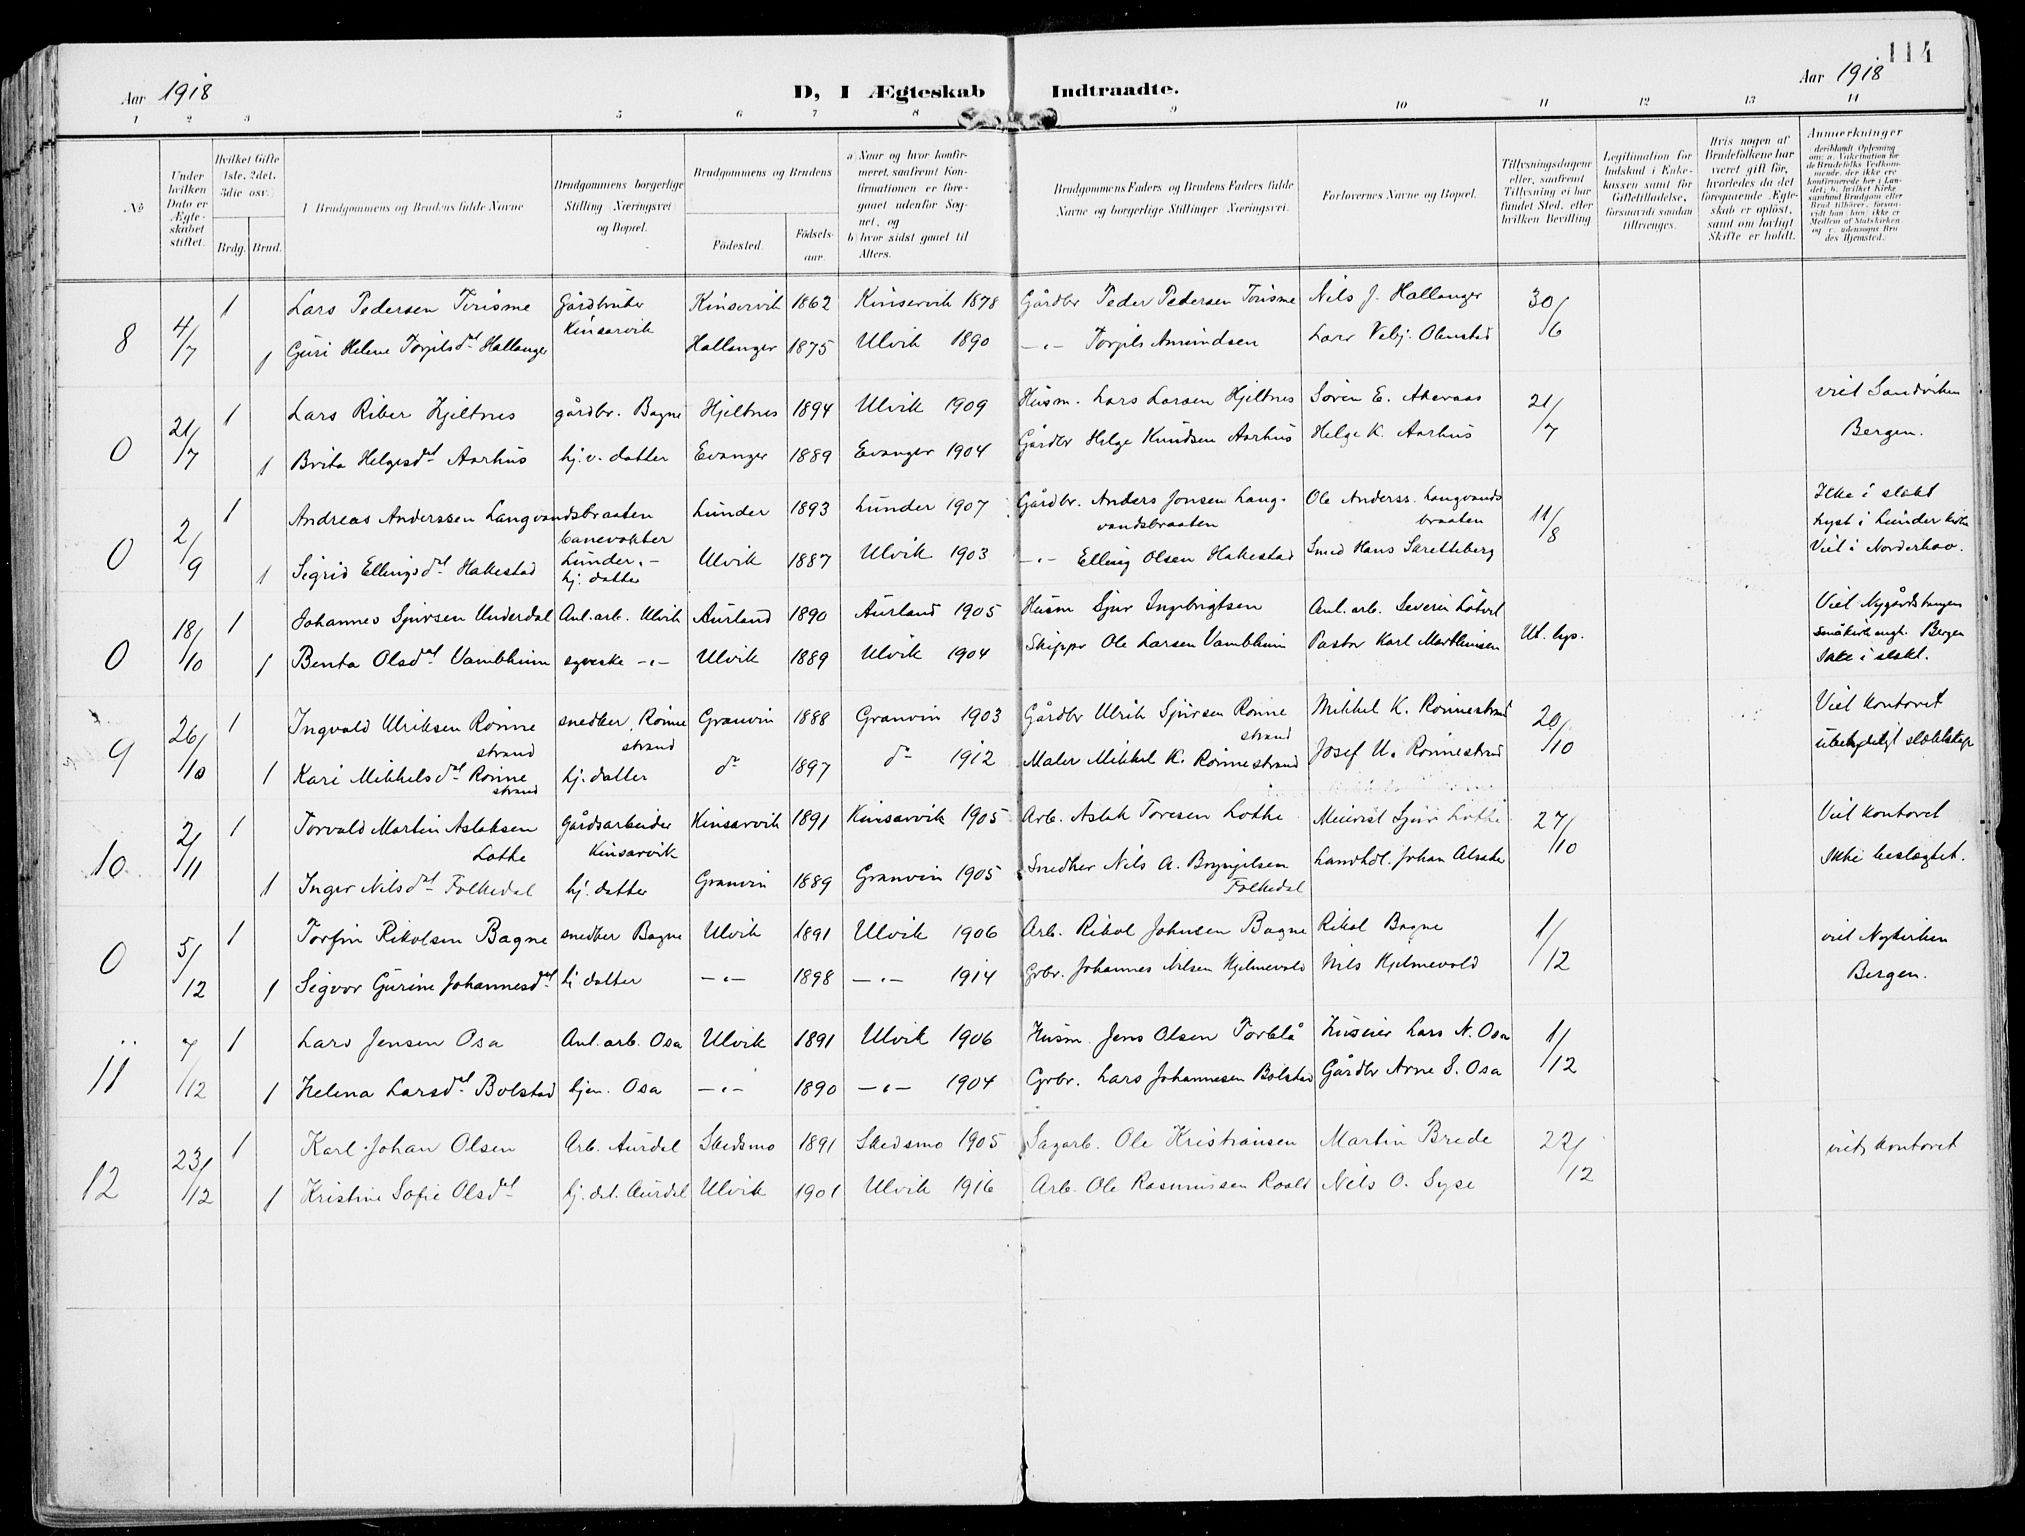 114
Aar 1918 D, I Ægteskab Indtraadte. Aar 1918
1 2 3 5 6 7 8 9 10 11 12 13 14
No
Under hvilken Dato er Ægteskabet stiftet.
Hvilket Gifte 1ste, 2det, 3die osv.
Brdg. Brud.
Brudgommens og Brudens fulde Navne
Brudgommens borgerlige Stilling (Næringsvei) og Bopæl.
Brudgommens og Brudens
Fødested. Fødsels-aar.
a) Naar og hvor konfirmeret, saafremt Konfirmationen er foregaaet udenfor Sognet, og b) hvor sidst gaaet til Alters.
Brudgommens Faders og Brudens Faders fulde Navne og borgerlige Stillinger (Næringsvei).
Forlovernes Navne og Bopæl.
Tillysningsdagene eller, saafremt Tillysning ei har fundet Sted, efter hvilken Bevilling
Legitimation for Indskud i Enkekassen samt for Giftetilladelse, forsaavidt saadan tiltrænges.
Hvis nogen af Brudefolkene har været gift før, hvorledes da det foregaaende Ægteskab er opløst, samt om lovligt Skifte er holdt.
Anmærkninger
8 4/7 1 Lars Pedersen Tvisme Gårdbruker Kinsarvik Kinservik 1862 Kinservik 1878 Gårdbr Peder Pedersen Tvisme Nils J. Hallanger 30/6
1 Guri Helene Torjilsdtr Hallanger Hallanger 1875 Ulvik 1890 -"- Torjils Amundsen Olmstad
0 21/7 1 Lars Riber Hjeltnes gårdbr. Bagne Hjeltnes 1894 Ulvik 1909 Husm. Lars Larsen Hjeltnes Søren E. 21/7 viet Sandviken
1 Brita Helgesdtr Aarhus hj.v. datter Evanger 1889 Evanger 1904 Gårdbr Helge Knudsen Aarhus Helge K. Aarhus Bergen.
0 2/9 1 Andreas Anderssen Langvandsbraaten banevokter Lunder Lunder 1893 Lunder 1907 Gårdbr. Anders Jonsen Langvandsbraaten Ole Anderss. Langvandsbraaten 11/8 Ikke i slekt
1 Sigrid Ellingsdtr Hakestad hj. datter Ulvik 1887 Ulvik 1903 -"- Elling Olsen Hakestad Smed Hans lyst i Lunder kirke Viet i Norderhov.
0 18/10 1 Johannes Sjursen Underdal Anl. arb. Ulvik Aurland 1890 Aurland 1905 Husm Sjur Ingebrigtsen Anl. arb. Severin Ut. lys. Viet Nygårdstangen
1 Benta Olsdtr Vambheim syerske -"- Ulvik 1889 Ulvik 1904 Skipper Ole Larsen Vambheim Pastor Karl Marthinsen Bergen Ikke i slekt.
9 26/10 1 Ingvald Ulriksen Rønnestrand snedker, Rønnestrand Granvin 1888 Granvin 1903 Gårdbr Ulrik Sjursen Rønnestrand Mikkel K. Rønnestrand 20/10 Viet kontoret
1 Kari Mikkelsdtr Rønnestrand hj. datter do 1897 do 1912 Maler Mikkel K. Rønnestrand Josef U. Rønnestrand ubetydeligt slektskap
10 2/11 1 Torvald Martin Aslaksen Lothe Gårdsarbeider Kinsarvik Kinsarvik 1891 Kinsarvik 1905 Arb. Aslak Toresen Lothe Sjur Lothe 27/10 Viet kontoret
1 Inger Nilsdtr Folkedal hj. datter Granvin 1889 Granvin 1905 Snedker Nils A. Brynjelsen Folkedal Landhdl. Johan Alsaker Ikke beslægtet.
0 5/12 1 Torfin Rikolsen Bagne snedker Bagne Ulvik 1891 Ulvik 1906 Arb. Rikol Johnsen Bagne Rikol Bagne 1/12 viet Nykirken
1 Sigvor Gurine Johannesdtr hj datter -"- 1898 -"- 1914 Grbr. Johannes Nilsen Hjelmevold Nils Hjelmevold Bergen.
11 7/12 1 Lars Jensen Osa Anl. arb. Osa Ulvik 1891 Ulvik 1906 Husm. Jens Olsen Torblå Huseier Lars N. Osa 1/12
1 Helena Larsdtr Bolstad hjem. Osa -"- 1890 -"- 1904 Grbr. Lars Johannesen Bolstad Gårdbr Arne S. Osa
12 23/12 1 Karl Johan Olsen Arb. Aurdal Skedsmo 1891 Skedsmo 1905 Sagarb. Ole Kristiansen Martin Brede 22/12 viet, kontoret
1 Kristine Sofie Olsdtr hj. dat. Aurdal Ulvik 1901 Ulvik 1916 Arb. Ole Rasmussen Roald Nils O. Syse